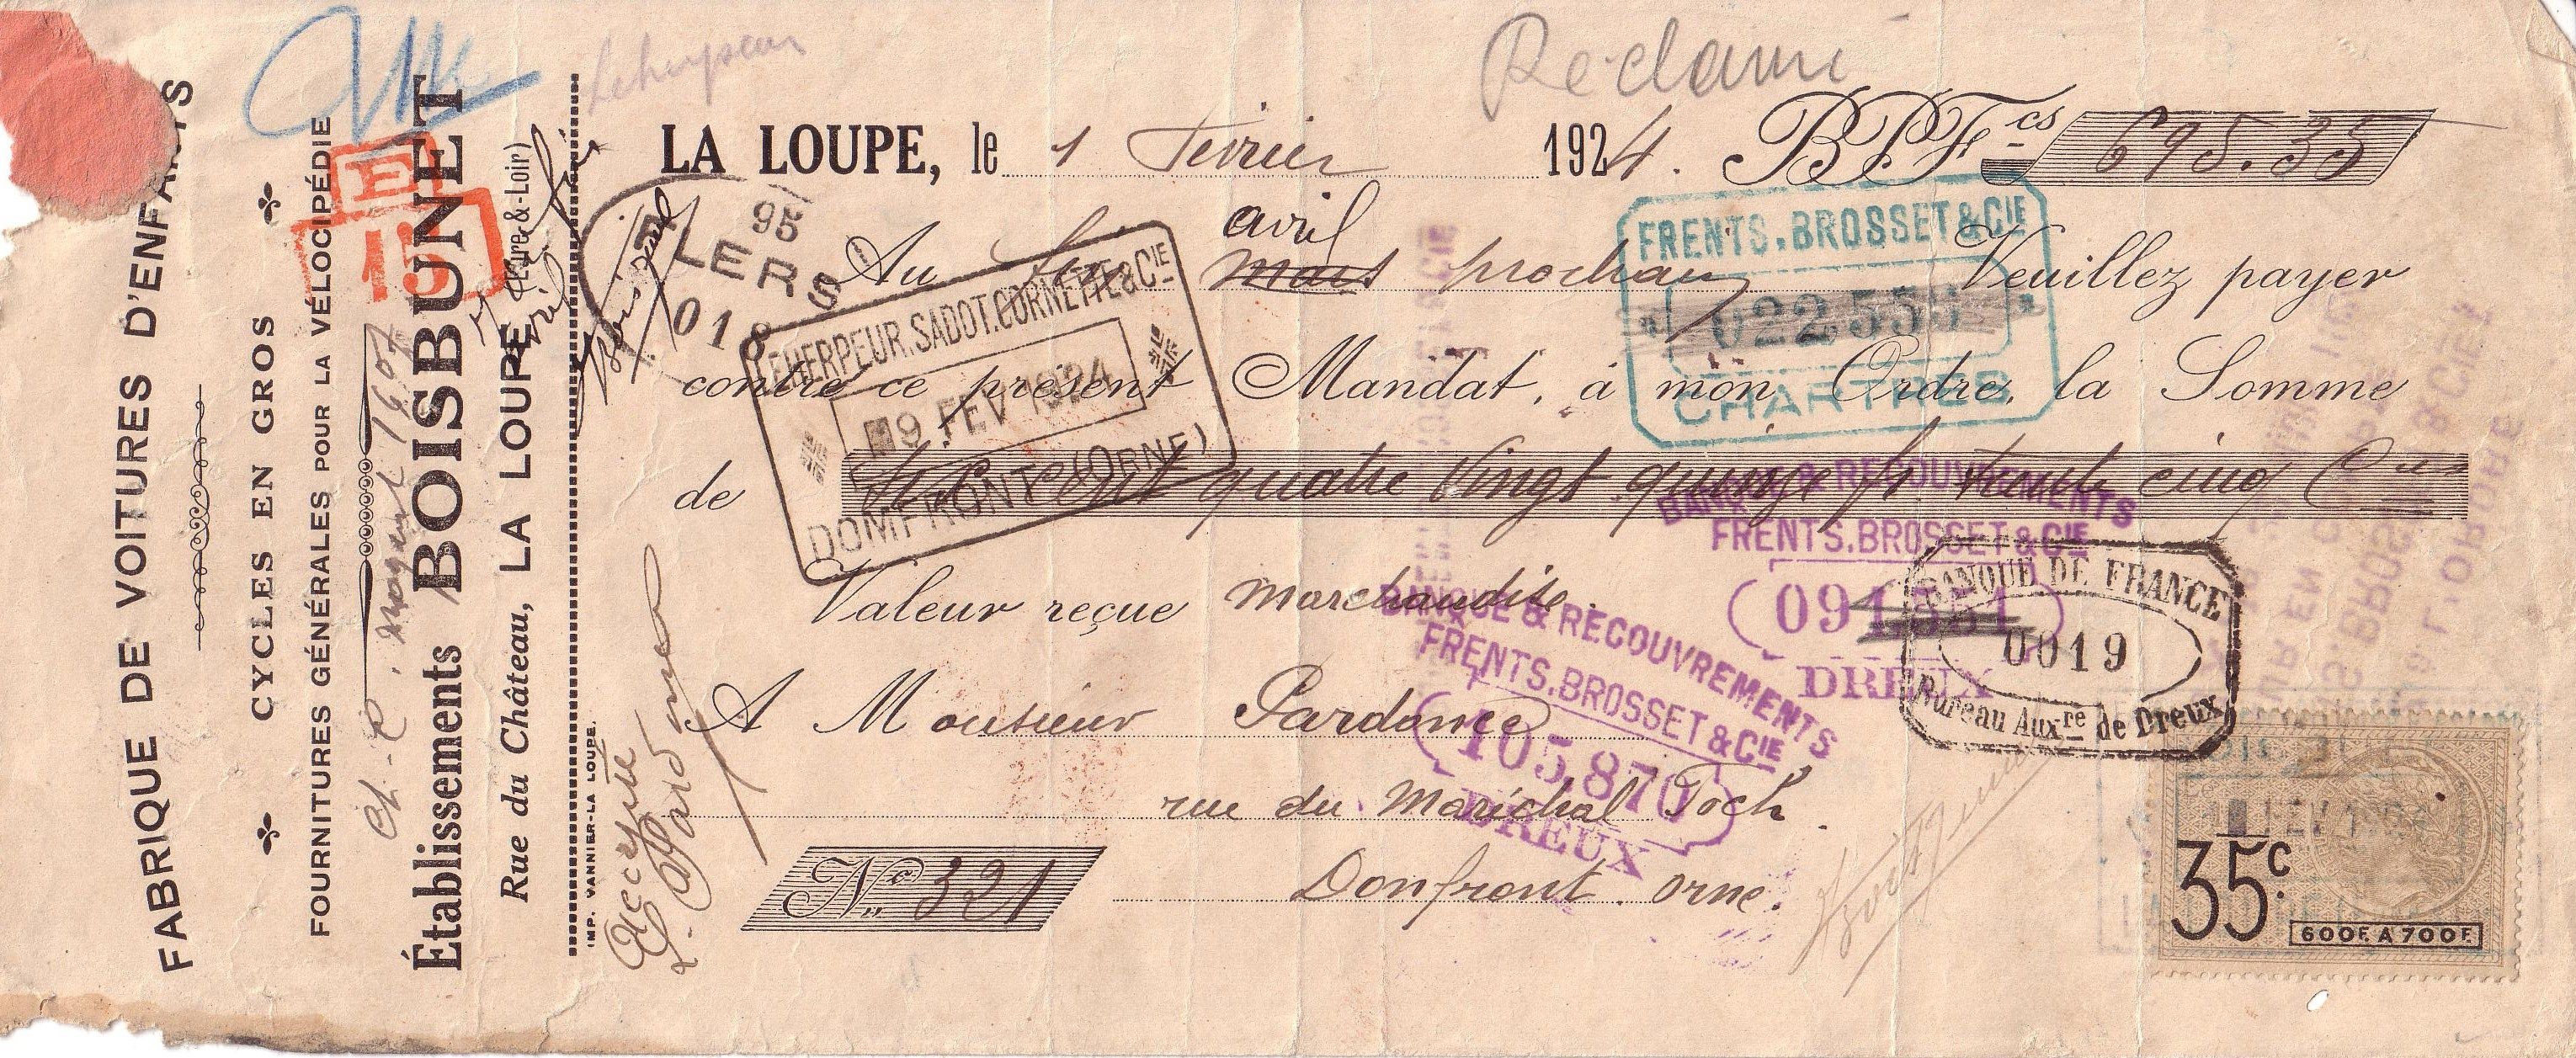 FABRIQUE DE VOITURES D'ENFANTS
CYCLES EN GROS
FOURNITURES GÉNÉRALES POUR LA VÉLOCIPÉDIE
Établissements BOISBUNET
Rue du Château, LA LOUPE (Eure-&-Loir)
IMP. VANNIER-LA LOUPE.
E
15
Réclamé
LA LOUPE, le 1 Fevrier 1924. BPFcs 695.35
95
FLERS
018
avril
Au fin mars prochain Veuillez payer
contre ce présent Mandat, à mon Ordre, la Somme
de Six cent quatre vingt quinze fr trente cinq Cmes
Valeur reçue marchandise.
A Monsieur Pardonee
rue du Maréchal Foch.
No 321 Donfront. Orne.
Acceptée
L. Pardonee
LEHERPEUR.SADOT.CORNETTE&CIE
9 FEV 1924
DOMFRONT (ORNE)
FRENTS.BROSSET&CIE
022555
CHARTRES
BANQUE & RECOUVREMENTS
FRENTS.BROSSET & CIE
091
DREUX
BANQUE & RECOUVREMENTS
FRENTS.BROSSET & CIE
105.870
DREUX
BANQUE DE FRANCE
0019
Bureau Auxre de Dreux
35c.
600F. A 700F.